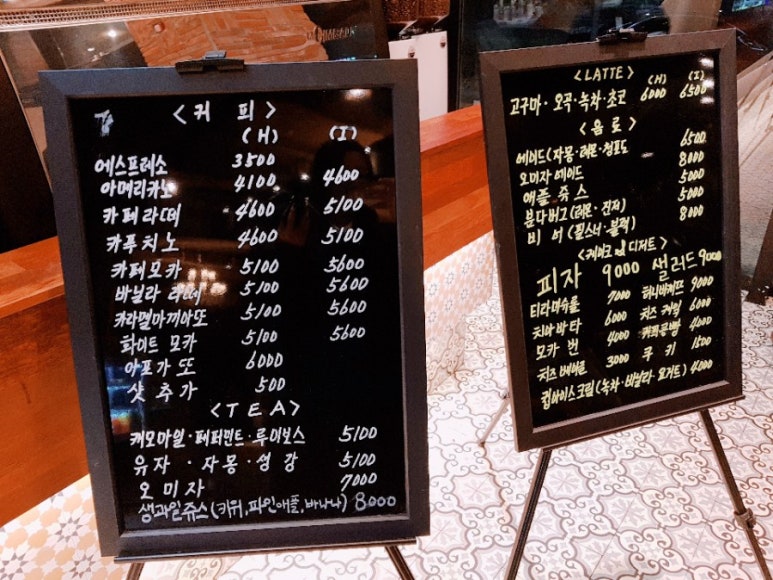 <커 피>
(H) (I)
에스프레소 3500
아메리카노 4100 4600
카페라떼 4600 5100
카푸치노 4600 5100
카페모카 5100 5600
바닐라 라떼 5100 5600
카라멜마끼아또 5100 5600
화이트 모카 5100 5600
아포가또 6000
샷추가 500
<TEA>
캐모마일·페퍼민트·루이보스 5100
유자·자몽·생강 5100
오미자 7000
생과일쥬스(키위,파인애플,바나나) 8000
<LATTE> (H) (I)
고구마·오곡·녹차·초코 6000 6500
<음료>
에이드(자몽·레몬·청포도 6500
오미자에이드 8000
애플쥬스 5000
분다버그(레몬·진저) 5000
비어(필스너·블랙) 8000
<케이크 및 디저트>
피자 9000 샐러드 9000
티라미슈 7000 허니브레드 9000
치아바타 6000 치즈케익 6000
모카번 4000 커피콩빵 4000
치즈베이글 3000 쿠키 1500
컵아이스크림(녹차·바닐라·요거트) 4000